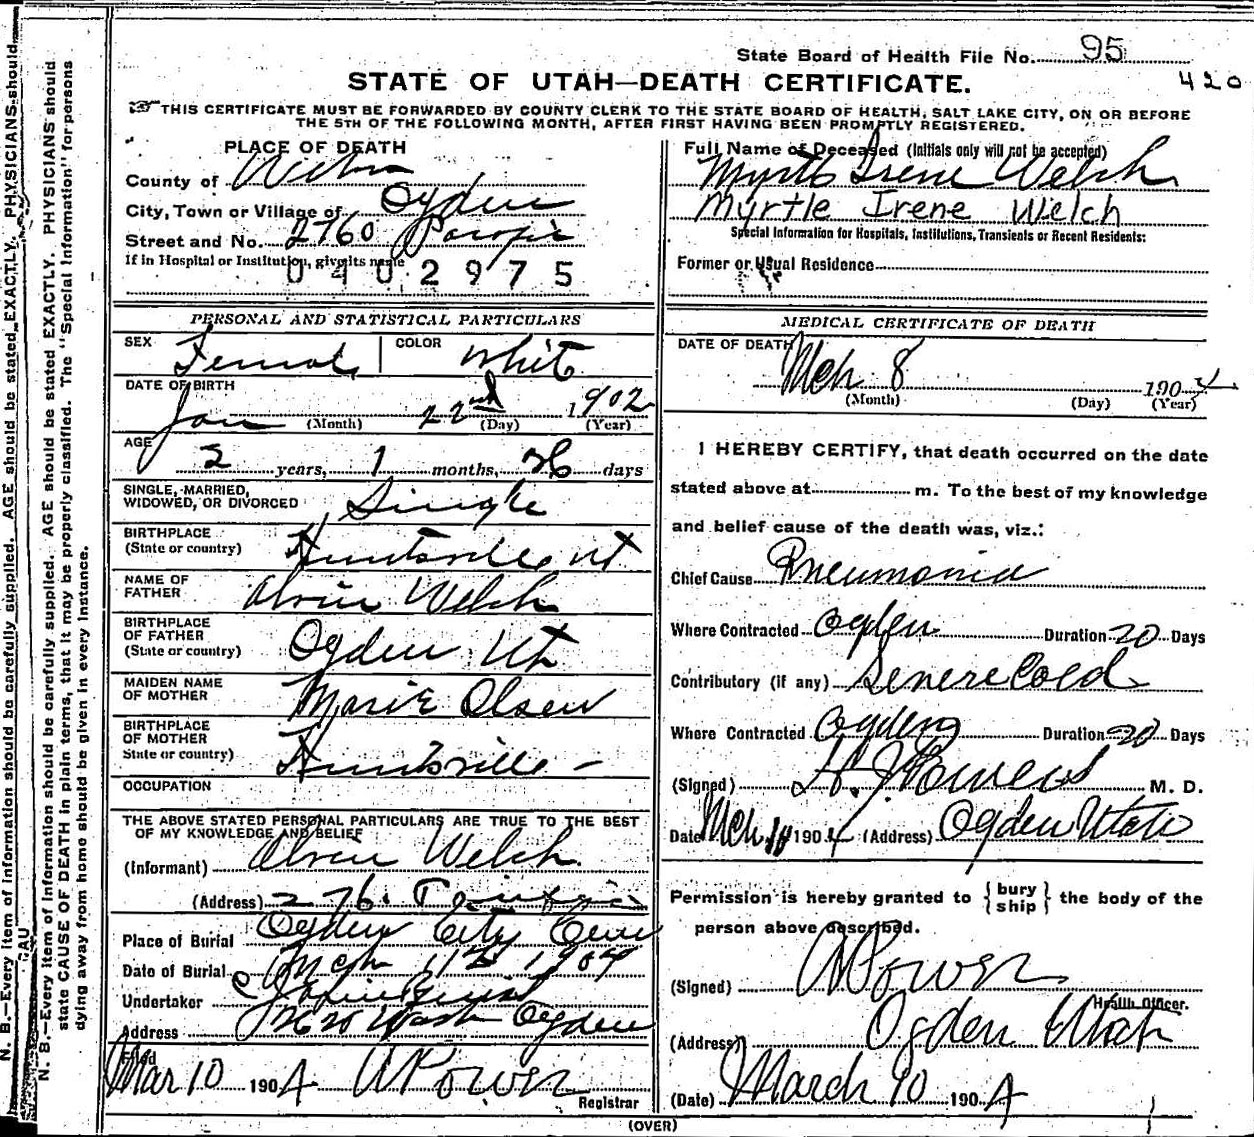 N. B.—Every item of information should be carefully supplied. AGE should be stated EXACTLY. PHYSICIANS should
N. B.—Every item of information should be carefully supplied. AGE should be stated EXACTLY. PHYSICIANS should
state CAUSE OF DEATH in plain terms, that it may be properly classified. The "Special Information" for persons
dying away from home should be given in every instance.
State Board of Health File No. 95
420
STATE OF UTAH—DEATH CERTIFICATE.
THIS CERTIFICATE MUST BE FORWARDED BY COUNTY CLERK TO THE STATE BOARD OF HEALTH, SALT LAKE CITY, ON OR BEFORE
THE 5TH OF THE FOLLOWING MONTH, AFTER FIRST HAVING BEEN PROMPTLY REGISTERED.
PLACE OF DEATH
County of
City, Town or Village of Ogden
Street and No. 2760 Pacific
If in Hospital or Institution, give its name
0402975
PERSONAL AND STATISTICAL PARTICULARS
SEX Female COLOR White
DATE OF BIRTH
Jan 22nd 1902
(Month) (Day) (Year)
AGE
2 years, 1 months, days
SINGLE, MARRIED,
WIDOWED, OR DIVORCED Single
BIRTHPLACE
(State or country) Huntsville Ut
NAME OF
FATHER Welch
BIRTHPLACE
OF FATHER
(State or country) Ogden Ut
MAIDEN NAME
OF MOTHER Marie Olsen
BIRTHPLACE
OF MOTHER
State or country) Huntsville —
OCCUPATION
THE ABOVE STATED PERSONAL PARTICULARS ARE TRUE TO THE BEST
OF MY KNOWLEDGE AND BELIEF
(Informant) Welch
(Address) 276
Place of Burial Ogden City Cem
Date of Burial Mch 11th 1904
Undertaker
Address Wash Ogden
Filed
Mar 10 1904
Registrar
Full Name of Deceased (Initials only will not be accepted)
Myrtle Irene Welch
Myrtle Irene Welch
Special Information for Hospitals, Institutions, Transients or Recent Residents:
Former or Usual Residence
MEDICAL CERTIFICATE OF DEATH
DATE OF DEATH
Mch 8 1904
(Month) (Day) (Year)
I HEREBY CERTIFY, that death occurred on the date
stated above at m. To the best of my knowledge
and belief cause of the death was, viz.:
Chief Cause Pneumonia
Where Contracted Ogden Duration 20 Days
Contributory (if any) Severe Cold
Where Contracted Ogden Duration 20 Days
(Signed) M. D.
Date Mch 10 1904 (Address) Ogden Utah
Permission is hereby granted to { bury ship } the body of the
person above described.
(Signed)
Health Officer.
(Address) Ogden Utah
(Date) March 10 1904
(OVER)